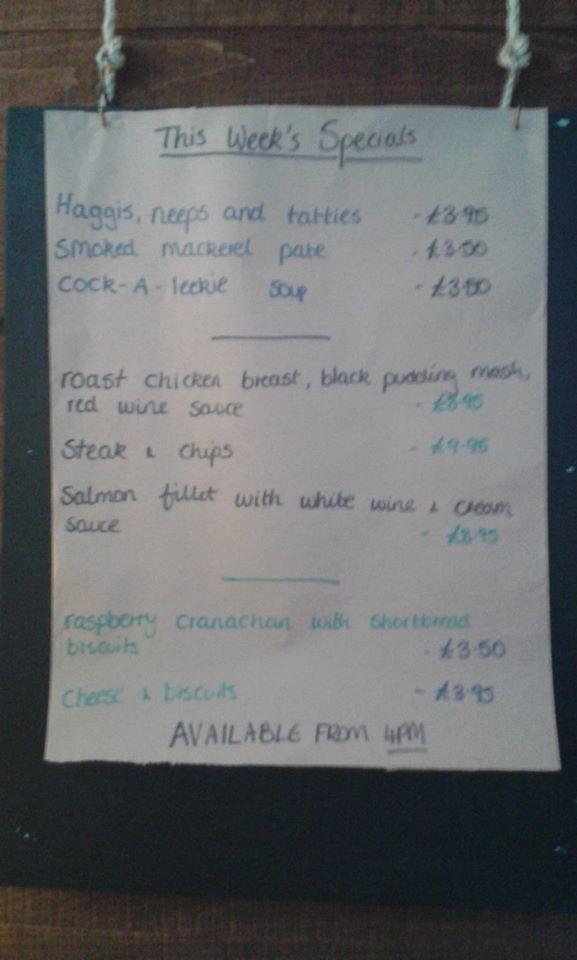 This Week's Specials
Haggis, neeps and tatties - £3.95
Smoked mackerel pate - £3.50
Cock-A-leekie soup - £3.50
roast chicken breast, black pudding mash,
red wine sauce - £8.95
Steak & chips - £9.95
Salmon fillet with white wine & cream
sauce - £8.95
raspberry Cranachan with shortbread
biscuits - £3.50
Cheese & biscuits - £3.95
AVAILABLE FROM 4PM